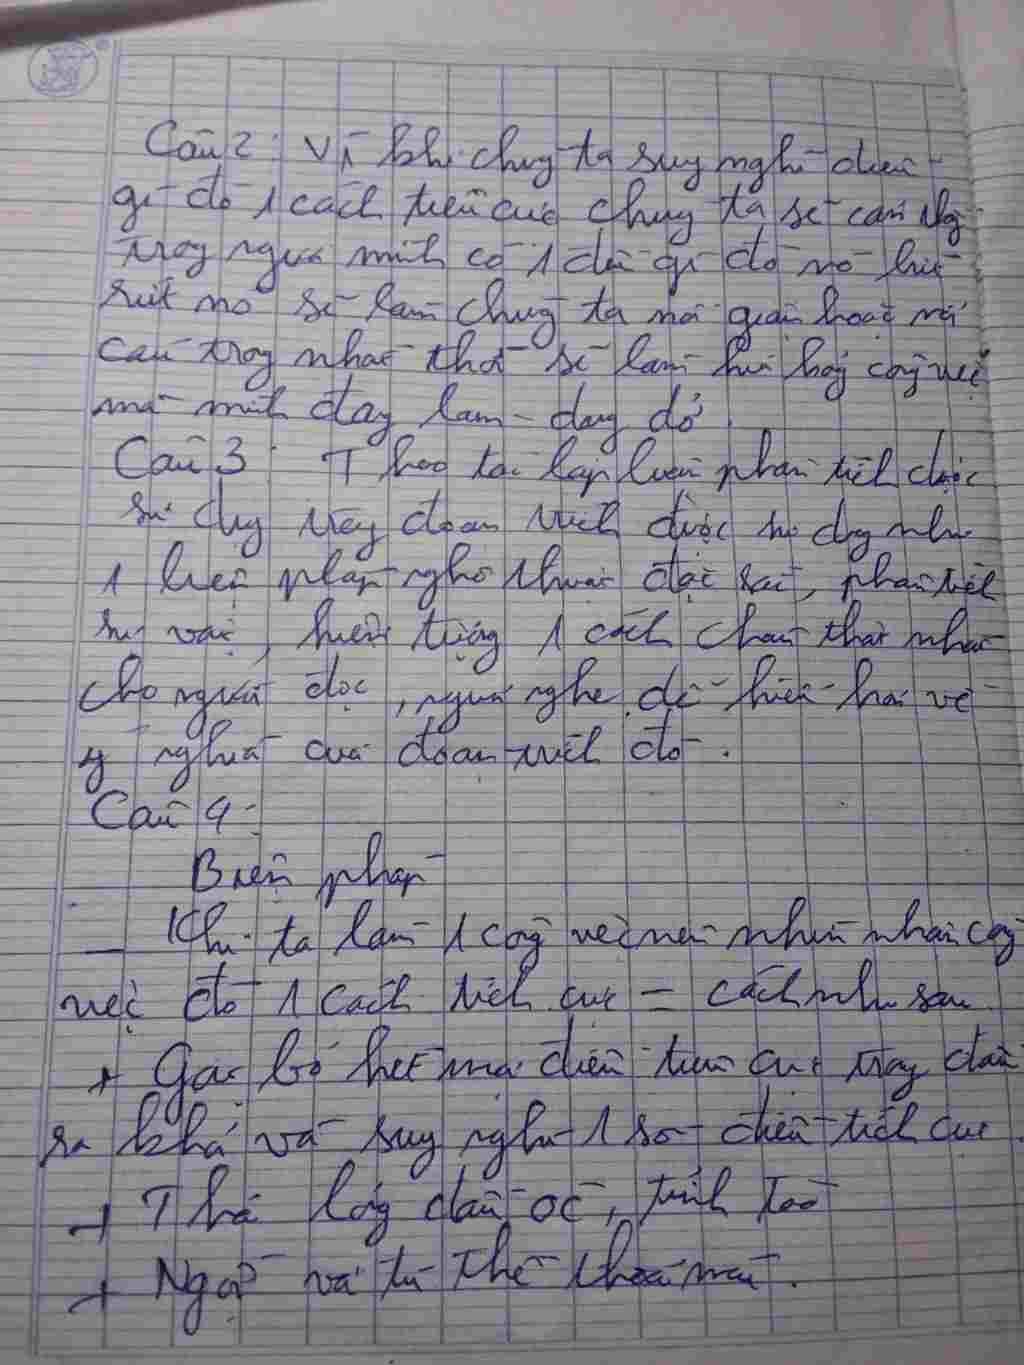 Câu 2: Vì khi chúng ta suy nghĩ điều
gì đó 1 cách tiêu cực chúng ta sẽ cảm thấy
trong người mình có 1 điều gì đó nó
nó sẽ làm chúng ta nổi giận hoặc nổi
cáu trong nhất thời sẽ làm hư hỏng công việc
mà mình đang làm dang dở.
Câu 3: Thao tác lập luận phân tích được
sử dụng trong đoạn trích được sử dụng như
1 biện pháp nghệ thuật đặc sắc, phân tích
sự vật, hiện tượng 1 cách chân thật nhất
cho người đọc, người nghe dễ hiểu hơn về
ý nghĩa của đoạn trích đó.
Câu 4:
Biện pháp
- Khi ta làm 1 công việc nên nhìn nhận công
việc đó 1 cách tích cực = cách như sau
+ Gạt bỏ hết mọi điều tiêu cực trong đầu
ra khỏi và suy nghĩ 1 số điều tích cực.
+ Thả lỏng đầu óc, tỉnh táo
+ Ngồi với tư thế thoải mái.